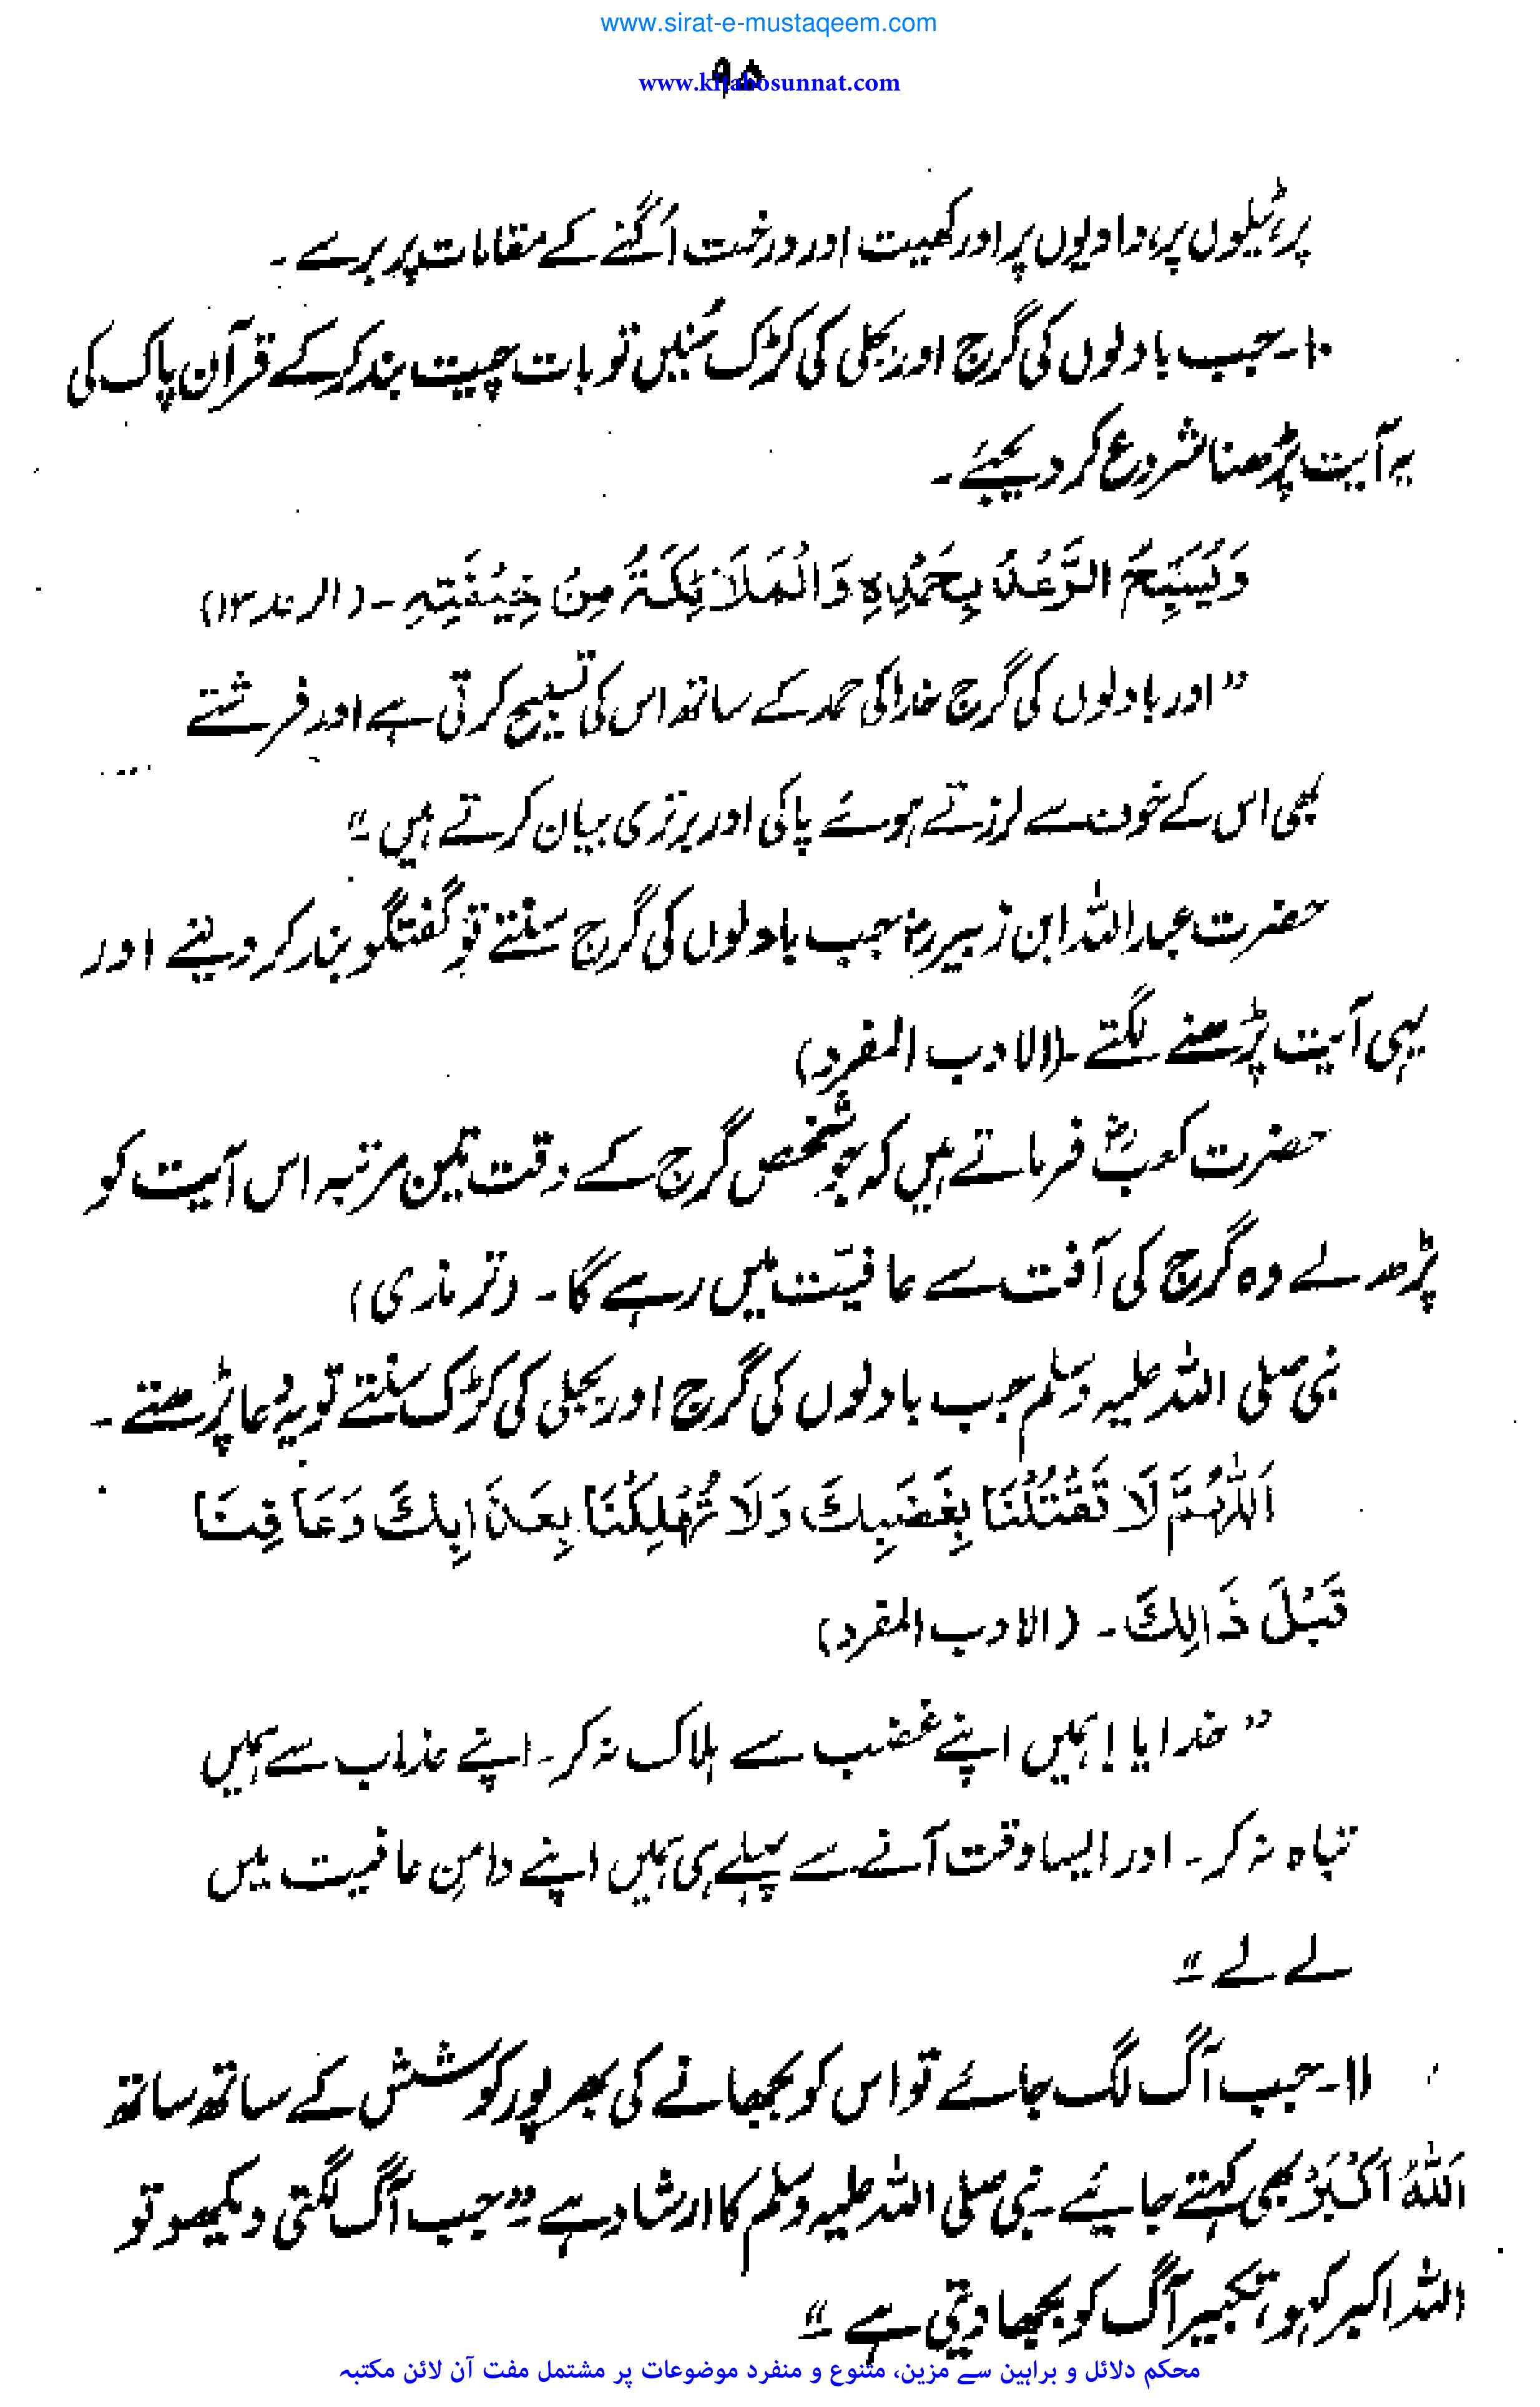 www.sirat-e-mustaqeem.com
۹۵
www.kitabosunnat.com
پر، ٹیلوں پر، وادیوں پر اور کھیت اور درخت اُگنے کے مقامات پر برسے ۔
۱۰۔ جب بادلوں کی گرج اور بجلی کی کڑک سُنیں تو بات چیت بند کر کے قرآن پاک کی
یہ آیت پڑھنا شروع کر دیجئے ۔
وَيُسَبِّحُ الرَّعْدُ بِحَمْدِهٖ وَالْمَلَائِكَةُ مِنْ خِيْفَتِهٖ ۔ (الرعد ۱۳)
”اور بادلوں کی گرج خدا کی حمد کے ساتھ اس کی تسبیح کرتی ہے اور فرشتے
بھی اس کے خوف سے لرزتے ہوئے پاکی اور برتری بیان کرتے ہیں ۔“
حضرت عبداللہ ابن زبیر رضؓ جب بادلوں کی گرج سنتے تو گفتگو بند کر دیتے اور
یہی آیت پڑھنے لگتے ۔ (الادب المفرد)
حضرت کعبؓ فرماتے ہیں کہ جو شخص گرج کے وقت تین مرتبہ اس آیت کو
پڑھ لے وہ گرج کی آفت سے عافیّت میں رہے گا ۔ (ترمذی)
نبی صلی اللہ علیہ وسلم جب بادلوں کی گرج اور بجلی کی کڑک سنتے تو یہ دُعا پڑھتے ۔
اَللّٰهُمَّ لَا تَقْتُلْنَا بِغَضَبِكَ وَلَا تُهْلِكْنَا بِعَذَابِكَ وَعَافِنَا
قَبْلَ ذَالِكَ ۔ (الادب المفرد)
”خدایا! ہمیں اپنے غضب سے ہلاک نہ کر ۔ اپنے عذاب سے ہمیں
تباہ نہ کر ۔ اور ایسا وقت آنے سے پہلے ہی ہمیں اپنے دامنِ عافیت میں
لے لے ۔“
۱۱۔ جب آگ لگ جائے تو اس کو بجھانے کی بھر پور کوشش کے ساتھ ساتھ
اَللّٰهُ اَكْبَرُ بھی کہتے جائیے ۔ نبی صلی اللہ علیہ وسلم کا ارشاد ہے ۔ ”جب آگ لگتی دیکھو تو
اللہ اکبر کہو، تکبیر آگ کو بجھا دیتی ہے ۔“
محکم دلائل و براہین سے مزین، متنوع و منفرد موضوعات پر مشتمل مفت آن لائن مکتبہ